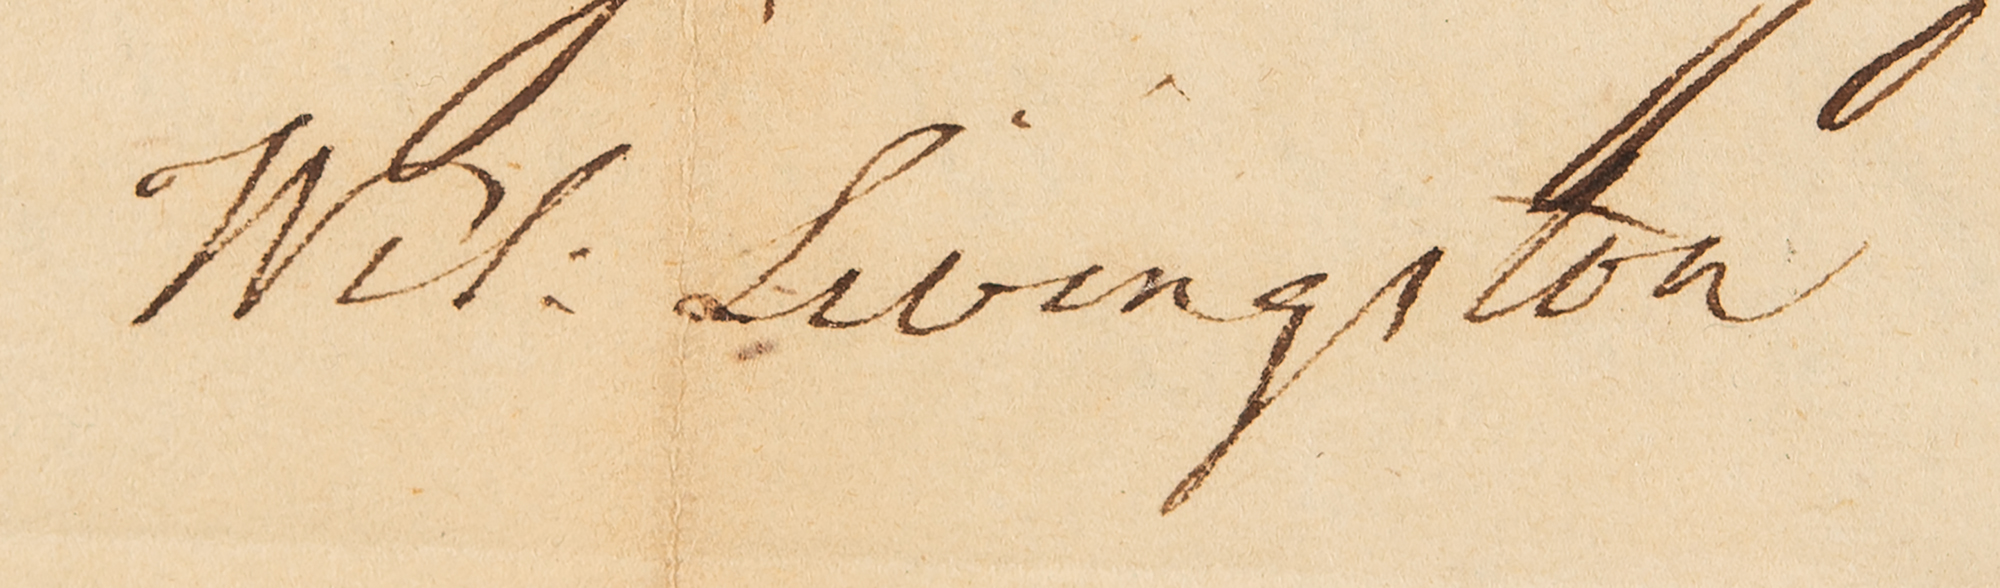 Wil: Livingston